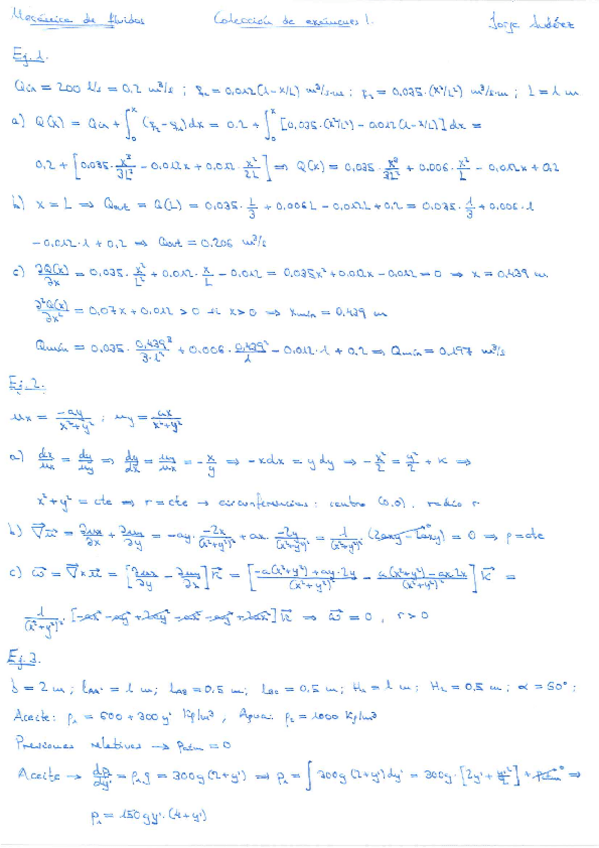 Mecánica de fluidos Colección de exámenes 1. Jorge Judérez
Ej. 1.
Qin = 200 l/s = 0.2 m³/s ; q₂ₐ = 0.012(1-x/L) m³/s·m ; q₂ = 0.035·(x²/L²) m³/s·m ; L = 1 m
a) Q(x) = Qin + ∫₀ˣ (q₂-q₂ₐ)dx = 0.2 + ∫₀ˣ [0.035·(x²/L²) - 0.012(1-x/L)] dx =
0.2 + [0.035·x³/3L² - 0.012x + 0.012·x²/2L] ⇒ Q(x) = 0.035·x³/3L² + 0.006·x²/L - 0.012x + 0.2
b) x = L ⇒ Qout = Q(L) = 0.035·L/3 + 0.006L - 0.012L + 0.2 = 0.035·1/3 + 0.006·1
-0.012·1 + 0.2 ⇒ Qout = 0.206 m³/s
c) ∂Q(x)/∂x = 0.035·x²/L² + 0.012·x/L - 0.012 = 0.035x² + 0.012x - 0.012 = 0 ⇒ x = 0.439 m
∂²Q(x)/∂x² = 0.07x + 0.012 > 0 si x > 0 ⇒ xmin = 0.439 m
Qmín = 0.035·0.439³/3·1² + 0.006·0.439²/1 - 0.012·1 + 0.2 ⇒ Qmín = 0.197 m³/s
Ej. 2.
ux = -ay/x²+y² ; uy = ax/x²+y²
a) dx/ux = dy/uy ⇒ dy/dx = uy/ux = -x/y ⇒ -xdx = ydy ⇒ -x²/2 = y²/2 + K ⇒
x²+y² = cte ⇒ r = cte → circunferencias: centro (0,0), radio r
b) ∇⃗u⃗ = ∂ux/∂x + ∂uy/∂y = -ay·-2x/(x²+y²)² + ax·-2y/(x²+y²)² = 1/(x²+y²)²·(2axy-2axy)⁰ = 0 ⇒ ρ = cte
c) ω⃗ = ∇⃗×u⃗ = [∂ux/∂y - ∂uy/∂x]k⃗ = [-a(x²+y²)+ay·2y/(x²+y²)² - a(x²+y²)-ax·2x/(x²+y²)²]k⃗ =
1/(x²+y²)²·[-ax²-ay²+2ay²-ax²-ay²+2ax²]k⃗ ⇒ ω⃗ = 0 , r > 0
Ej. 3.
b = 2 m ; LAA' = 1 m ; LAB = 0.5 m ; LBC = 0.5 m ; H₁ = 1 m ; H₂ = 0.5 m ; α = 50° ;
Aceite: ρ₁ = 600 + 300y' Kg/m³ , Agua: ρ₂ = 1000 Kg/m³
Presiones relativas → patm = 0
Aceite → dp₁/dy' = ρ₁g = 300g(2+y') ⇒ p₁ = ∫300g(2+y')dy' = 300g·[2y'+y'²/2] + patm⁰ ⇒
p₁ = 150gy'·(4+y')